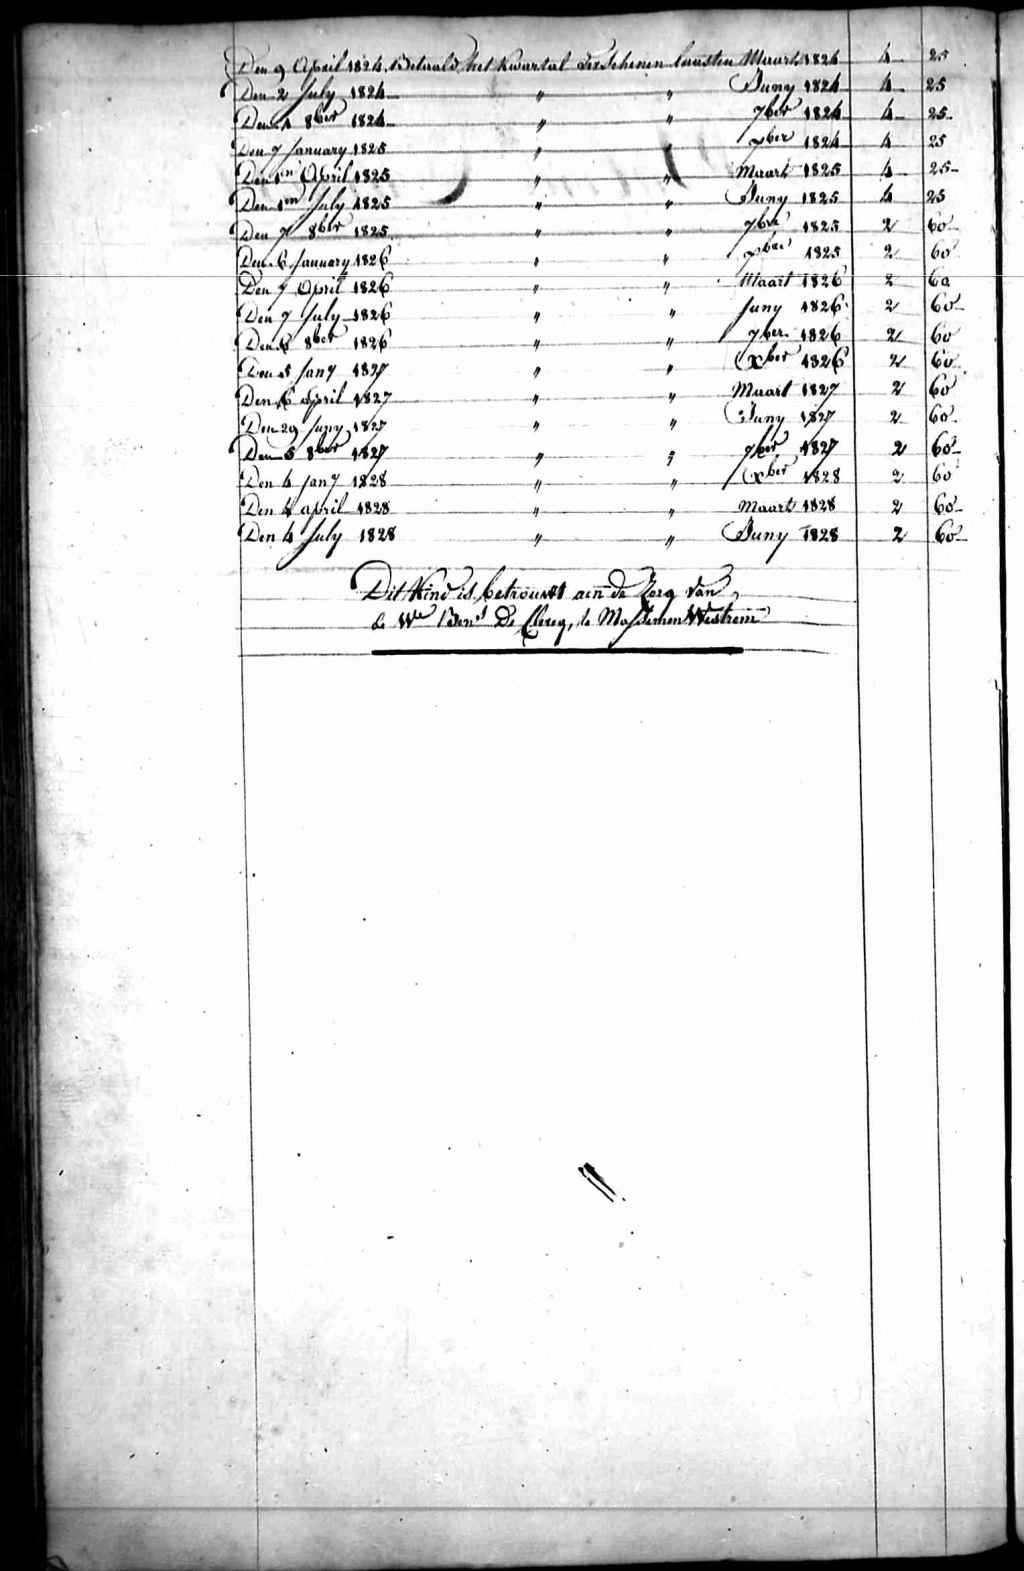 Den 9 April 1824 Betaald het kwartal verschenen laasten Maart 1824 4 25
Den 2 July 1824 " " Juny 1824 4 25
Den 1 8ber 1824 " " 7ber 1824 4 25
Den 7 January 1825 " " xber 1824 4 25
Den 1en April 1825 " " Maart 1825 4 25
Den 1en July 1825 " " Juny 1825 4 25
Den 7 8ber 1825 " " 7ber 1825 2 60
Den 6 January 1826 " " xber 1825 2 60
Den 7 April 1826 " " Maart 1826 2 60
Den 7 July 1826 " " Juny 1826 2 60
Den 6 8ber 1826 " " 7ber 1826 2 60
Den 5 Jany 1827 " " Xber 1826 2 60
Den 6 April 1827 " " Maart 1827 2 60
Den 29 Juny 1827 " " Juny 1827 2 60
Den 5 8ber 1827 " " 7ber 1827 2 60
Den 4 Jany 1828 " " Xber 1828 2 60
Den 4 april 1828 " " Maart 1828 2 60
Den 4 July 1828 " " Juny 1828 2 60
Dit Kind is betrouwt aen de Zorg van
de We Ben't De Clercq, te Massemen Westrem